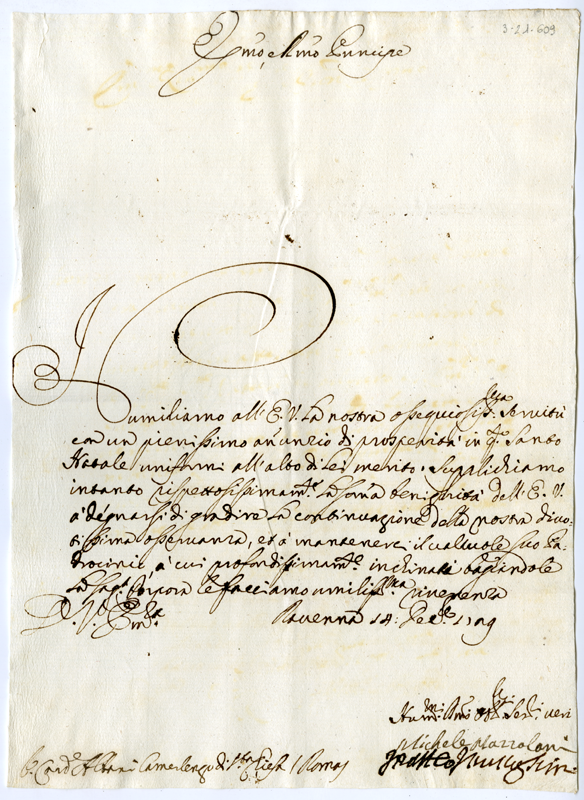 3-21-609
Em͞o e R͞mo Principe
Humiliamo all' E. V. la nostra ossequiosis.ma Servitù
con un pienissimo anunzio di prosperità in q.o Santo
Natale uniformi all' alto di Lei merito. Supplichiamo
intanto rispettosissimam.te la som̃a benignità dell' E. V.
à degnarsi di gradire la continuazione della nostra divo=
tissima osservanza, et à mantenerci il valevole suo Pa=
trocinio, à cui profondissimam.te inchinati baciandole
la Sag.a Porpora le facciamo umiliss.ma riverenza
D. V. Em.za
Ravenna 14: Xbre 1729
Hum.mi Ser.i veri
Michele Mazzolani
S.r Card. Albani Camerlengo di S.ta Chiesa / Roma